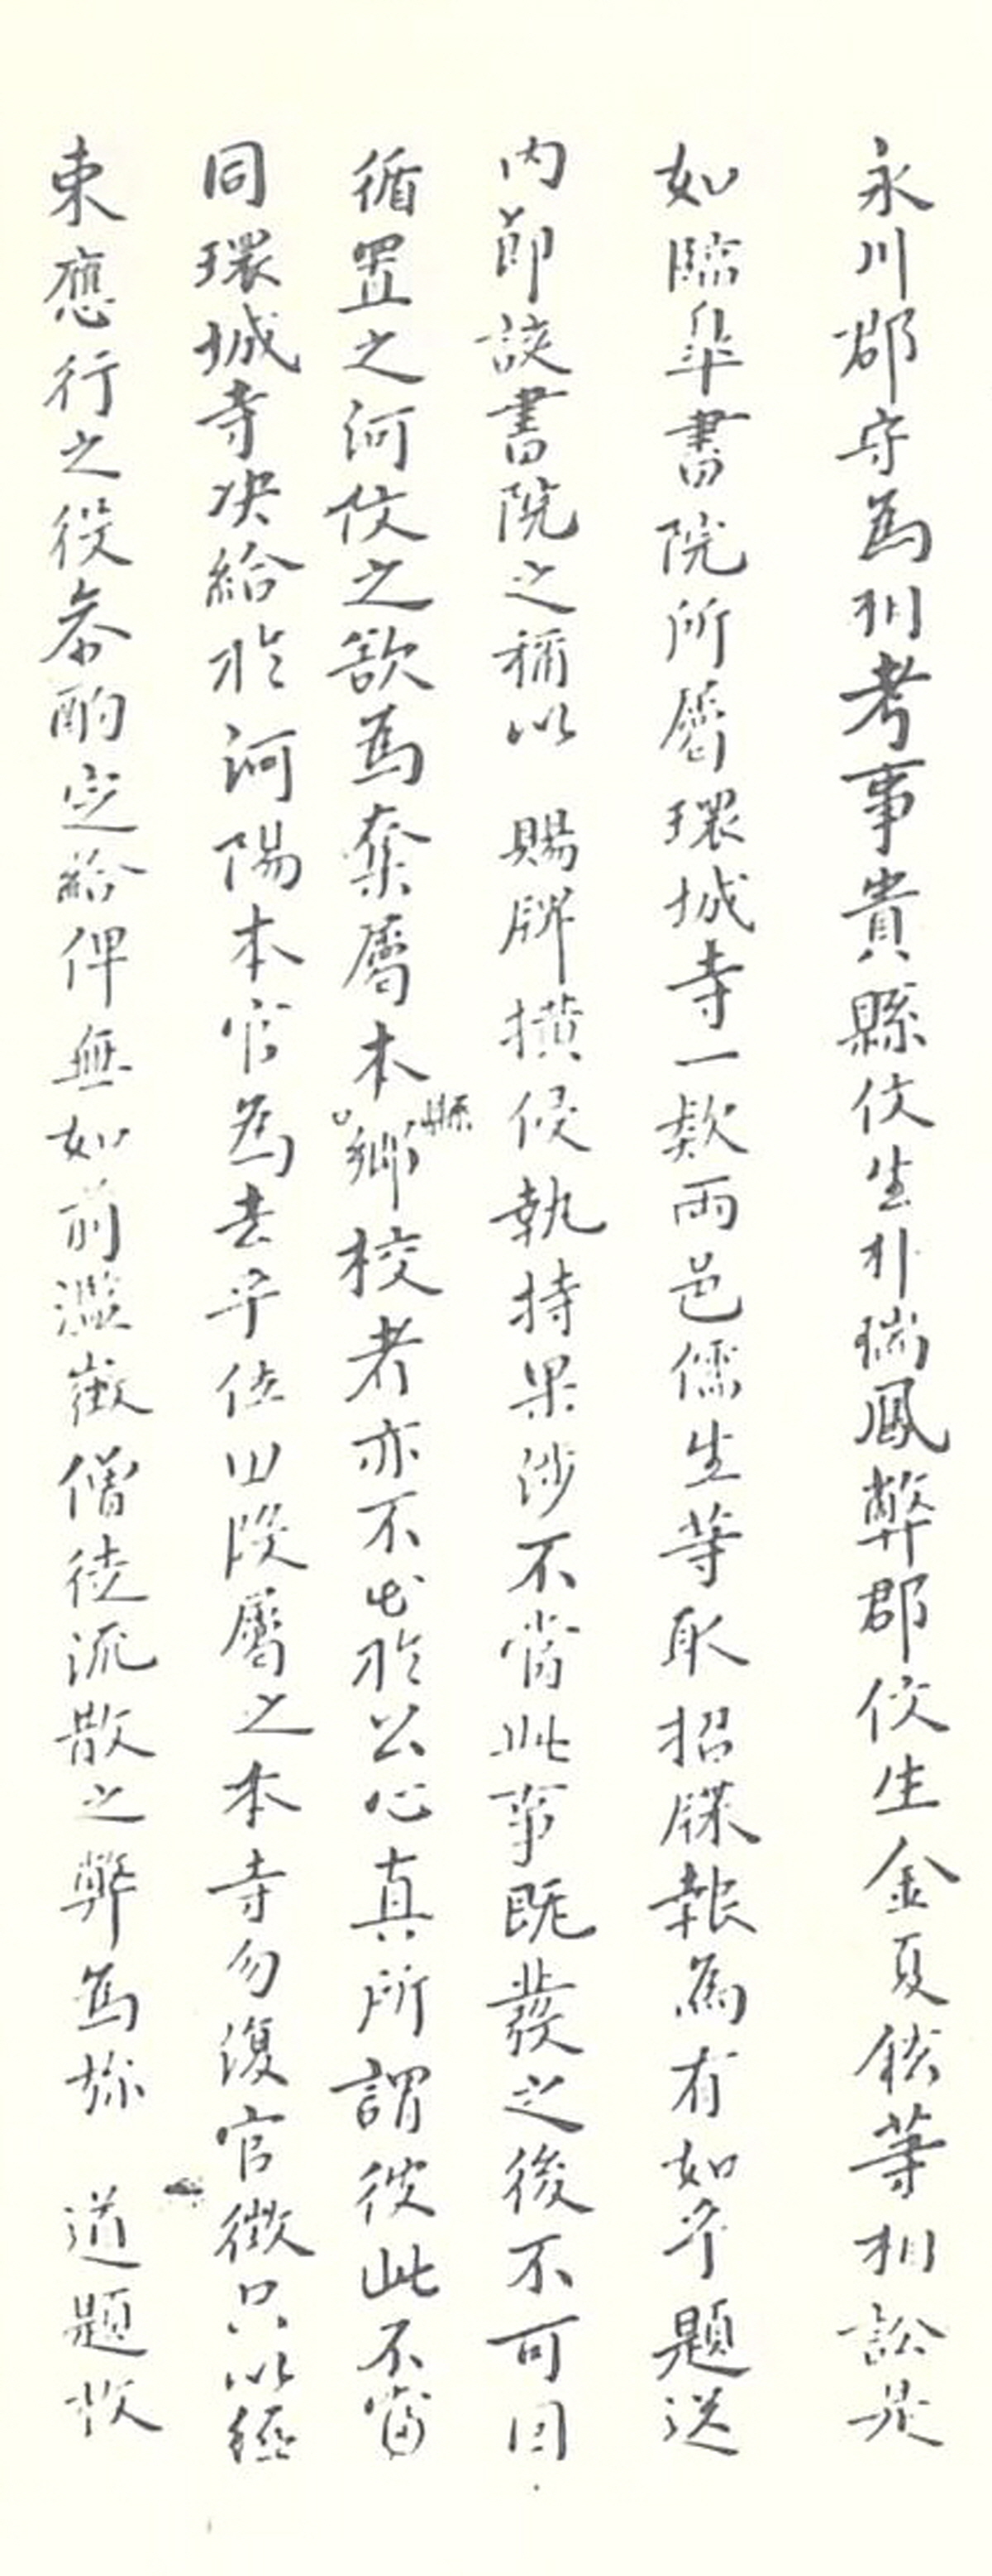 永川郡守爲相考事貴縣校生朴瑞鳳弊郡校生金夏銖等相訟是
如臨臯書院所屬環城寺一款兩邑儒生等取招牒報爲有如乎題送
內節該書院之稱以 賜牌橫侵執持果涉不當此事旣發之後不可因
循置之河校之欲爲奪屬本縣校者亦不出於公心眞所謂彼此不當
同環城寺決給於河陽本官爲去乎位田段屬之本寺勿復官徵只以極
束應行之役參酌定給俾無如前濫徵僧徒流散之弊爲旀 道題故